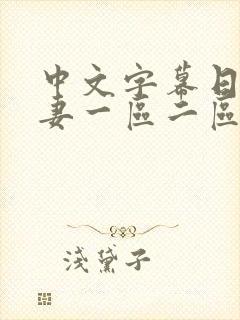 中文字幕日
妻一區二區
淺黛子